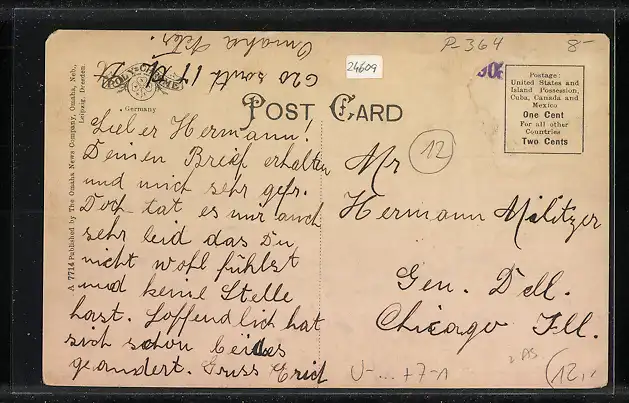 Omaha Nebr.
620 South 17
P-364
8-
24609
POLYCHROME
Germany
POST CARD
Postage:
United States and
Island Possession,
Cuba, Canada and
Mexico
One Cent
For all other
Countries
Two Cents
A 7714 Published by The Omaha News Company, Omaha, Neb.,
Leipzig, Dresden.
Lieber Hermann!
Deinen Brief erhalten
und mich sehr gefr.
Doch tat es mir auch
sehr leid das Du
nicht wohl fühlst
und keine Stelle
hast. Hoffendlich hat
sich schon beides
geändert. Gruss Erich
12
Mr
Hermann Militzer
Gen. Dell.
Chicago Ill.
U-... +7-1
(12,-